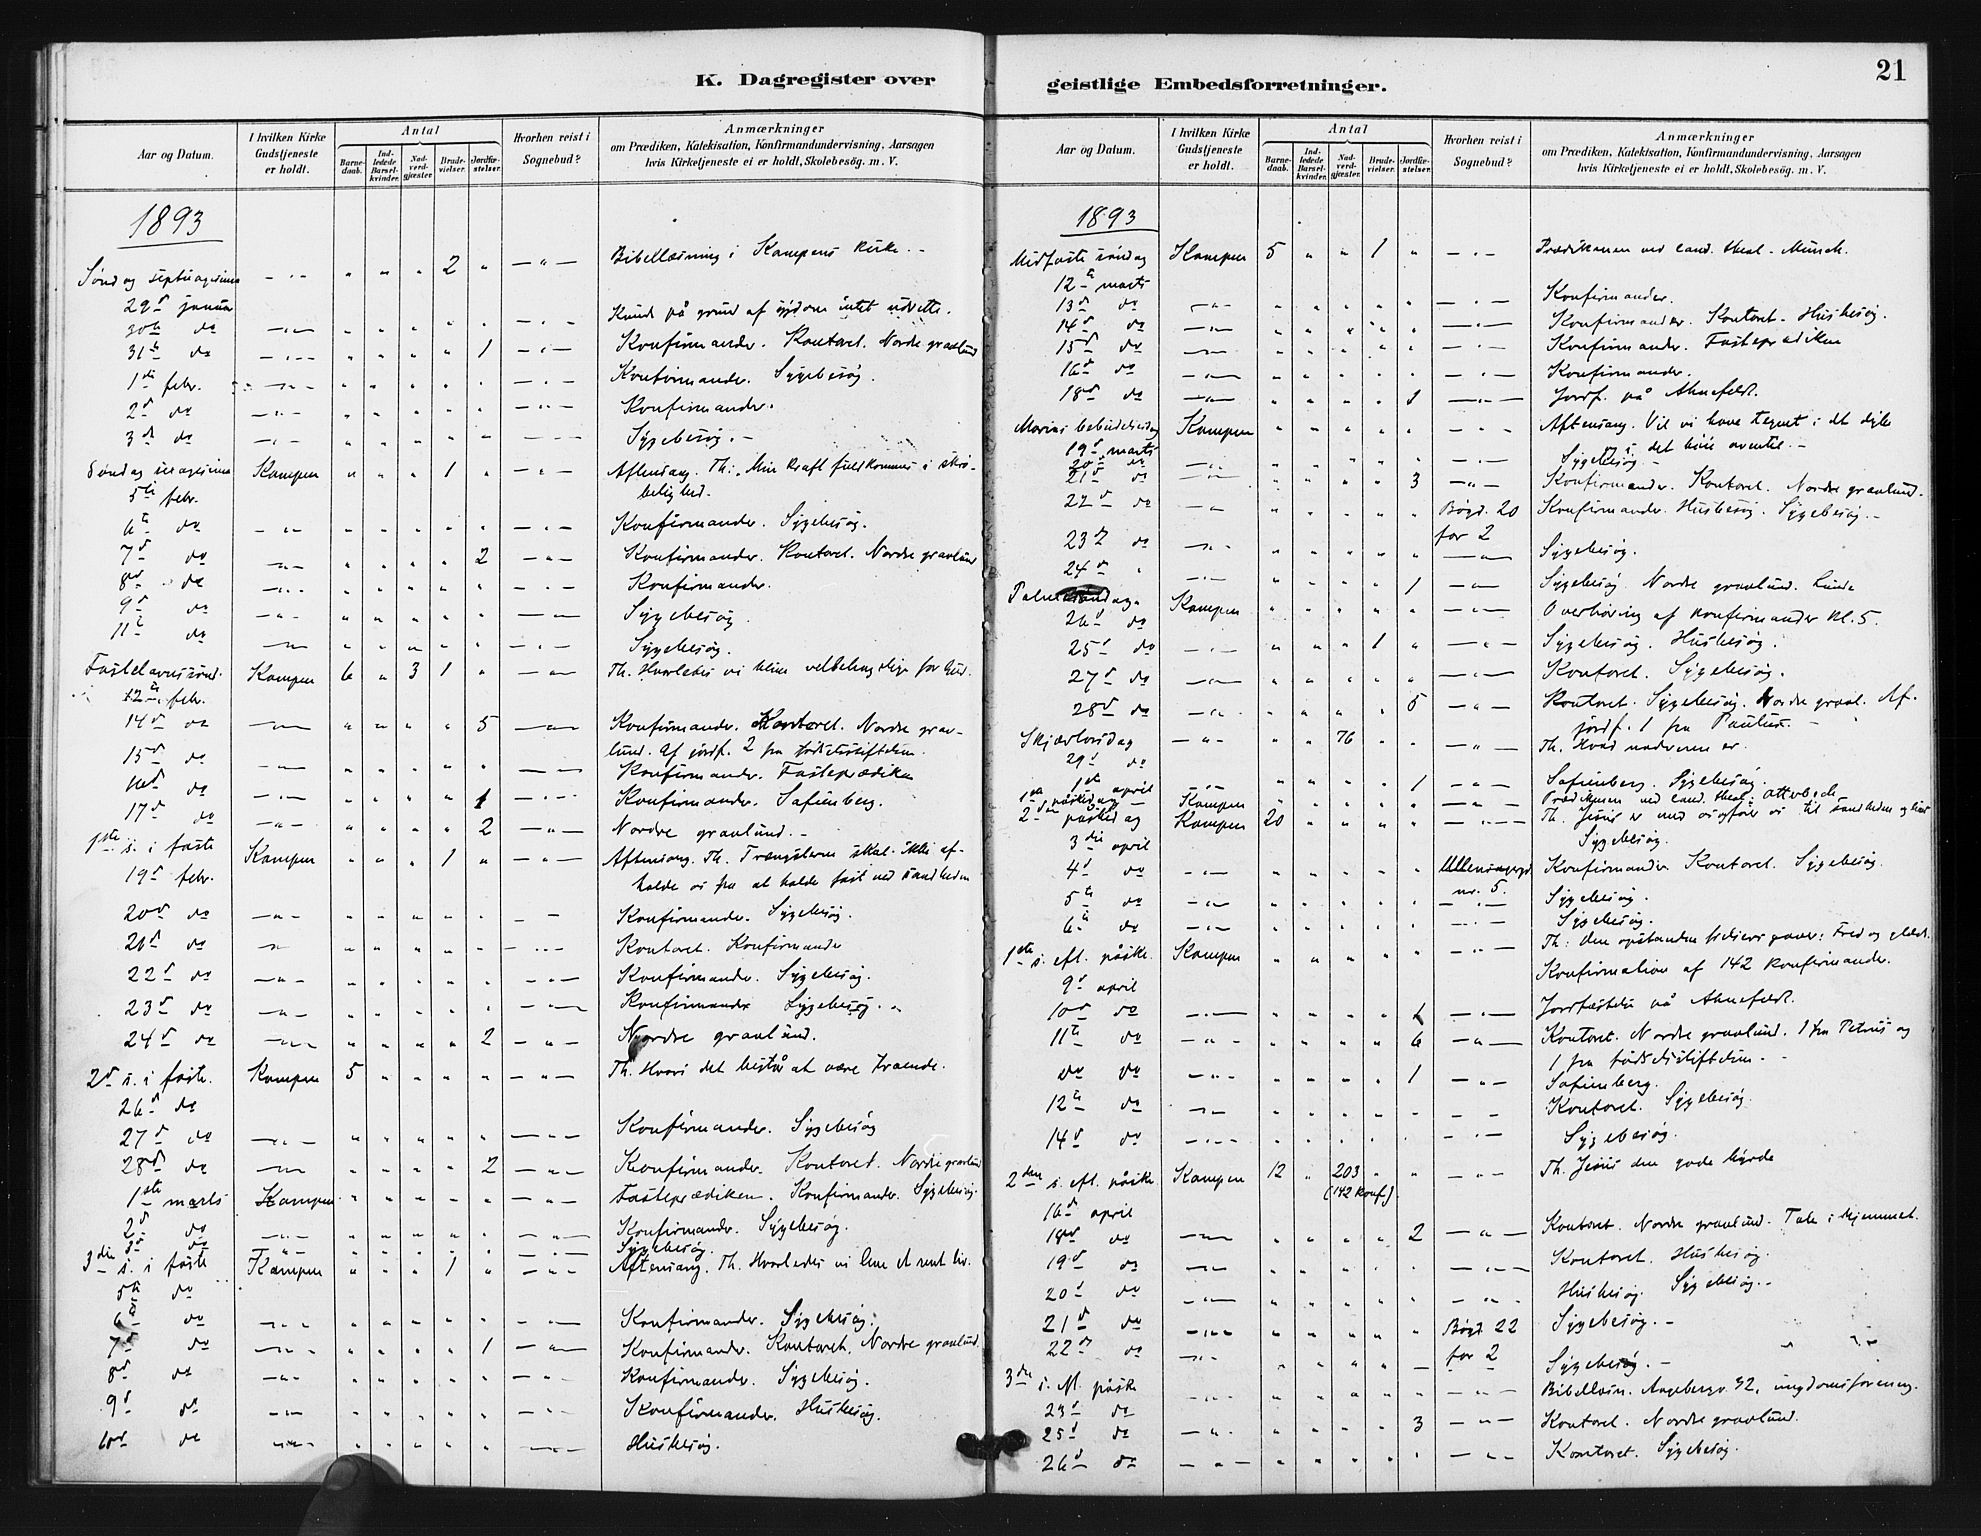 K. Dagregister over
Aar og Datum.
I hvilken Kirke Gudstjeneste er holdt.
Antal
Barnedaab.
Indledede Barselkvinder.
Nadverdgjæster
Brudevielser.
Jordfæstelser.
Hvorhen reist i Sognebud?
Anmærkninger
om Prædiken, Katekisation, Konfirmandundervisning, Aarsagen
hvis Kirketjeneste ei er holdt, Skolebesög. m. V.
1893
Søndag septuagesima 2 Bibellæsning i Kampens kirke.
29d januar Kunde på grund af sygdom intet udrette.
30te do
31te do 1 Konfirmander. Kontoret. Nordre gravlund
1ste febr. Konfirmander. Sygebesøg.
2d do Konfirmander.
3die do Sygebesøg.
Søndag sexagesima Kampen 1 Aftensang. Th: Min kraft fuldkommes i skrøbelighed.
5te febr.
6te do Konfirmander. Sygebesøg.
7d do 2 Konfirmander. Kontoret. Nordre gravlund
8d do Konfirmander.
9d do Sygebesøg
11te do Sygebesøg.
Fastelavnssønd. Kampen 6 3 1 Th. Hvorledes vi blive velbehagelige for Gud.
12te febr.
14d do 5 Konfirmander. Kontoret. Nordre gravlund. Af jordf. 2 fra fødselsstiftelsen.
15d do Konfirmander. Fasteprædiken
16d do 1 Konfirmander. Sofienberg.
17d do 2 Nordre gravlund.
1ste s. i faste Kampen 1 Aftensang. Th. Trængslerne skal ikke afholde os fra at holde fast ved sandheden
19d febr.
20d do Konfirmander. Sygebesøg.
21d do Kontoret. Konfirmander
22d do Konfirmander. Sygebesøg.
23d do Konfirmander Sygebesøg.
24d do 2 Nordre gravlund.
2d s. i faste. Kampen 5 Th. Hvori det består at være troende.
26d do
27d do Konfirmander. Sygebesøg
28d do 2 Konfirmander. Kontoret. Nordre gravlund
1ste marts Kampen Fasteprædiken. Konfirmander. Sygebesøg.
2d do Konfirmander. Sygebesøg.
3d do Sygebesøg.
3die s. i faste Kampen 1 Aftensang. Th. Hvorledes vi leve et rent liv.
5te do
6te do Konfirmander. Sygebesøg.
7d do 1 Konfirmander. Kontoret. Nordre gravlund.
8d do Konfirmander. Sygebesøg.
9d do Konfirmander. Husbesøg.
10d do Husbesøg.
geistlige Embedsforretninger.
21
Aar og Datum.
I hvilken Kirke Gudstjeneste er holdt.
Antal
Barnedaab.
Indledede Barselkvinder.
Nadverdgjæster.
Brudevielser.
Jordfæstelser.
Hvorhen reist i Sognebud?
Anmærkninger
om Prædiken, Katekisation, Konfirmandundervisning, Aarsagen
hvis Kirketjeneste ei er holdt, Skolebesög. m. V.
1893
Midfaste søndag Kampen 5 1 Prædikenen ved cand. theol. Munch.
12te marts
13d do Konfirmander.
14d do Konfirmander. Kontoret. Husbesøg.
15d do Konfirmander. Fasteprædiken
16d do Konfirmander.
18d do 1 Jordf. på Akersfeldt.
Marias bebudelsesdag Kampen Aftensang. Vil vi have tegnet i det dybe
19d marts og i det høie oventil.
20d do Sygebesøg.
21d do 3 Konfirmander. Kontoret. Nordre gravlund.
22d do Bøgd. 20 for 2 Konfirmander. Husbesøg. Sygebesøg.
23d do Sygebesøg.
24d 1 Sygebesøg. Nordre gravlund.
Palmesøndag. Kampen Overhøring af konfirmander kl. 5.
26d do
25d do 1 Sygebesøg. Husbesøg.
27d do Kontoret. Sygebesøg.
28d do 5 Kontoret. Sygebesøg. Nordre gravl. Af jordf. 1 fra Paulus.
Skjærtorsdag 76 Th. Hvad nadveren er.
29d do
1ste april 1 Sofienberg. Sygebesøg.
1ste påskedag Kampen Prædikenen ved cand. theol.
2den påskedag Kampen 20 Th. Jesus er med os og fører os til sandheden og livet
3die april Sygebesøg.
4d do nr. 5. Konfirmander Kontoret. Sygebesøg.
5te do Sygebesøg.
6te do Sygebesøg.
1ste s. eft. påske. Kampen Th: den opstandne frelsers gaver: Fred og glæde.
9d april Konfirmation af 142 konfirmander.
10d do 1 Jordfæstelse på Akersfeldt.
11te do 6 Kontoret. Nordre gravlund. 1 fra Petrus og 1 fra fødselsstiftelsen.
do do 1 Sofienberg.
12te do Kontoret. Sygebesøg.
14d do Sygebesøg.
2den s. eft. påske Kampen 12 203 Th. Jesus den gode hyrde
(142 konf.)
16d april
18d do 2 Kontoret. Nordre gravlund. Tale i hjemmet.
19d do Kontoret. Husbesøg.
20d do Husbesøg. Sygebesøg.
21d do Bøgd. 22 for 2 Sygebesøg.
22d do Sygebesøg.
3die s. eft. påske Bibellæsn. 42, ungdomsforening.
23d do
25d do 3 Kontoret. Nordre gravlund.
26d do Kontoret. Sygebesøg.